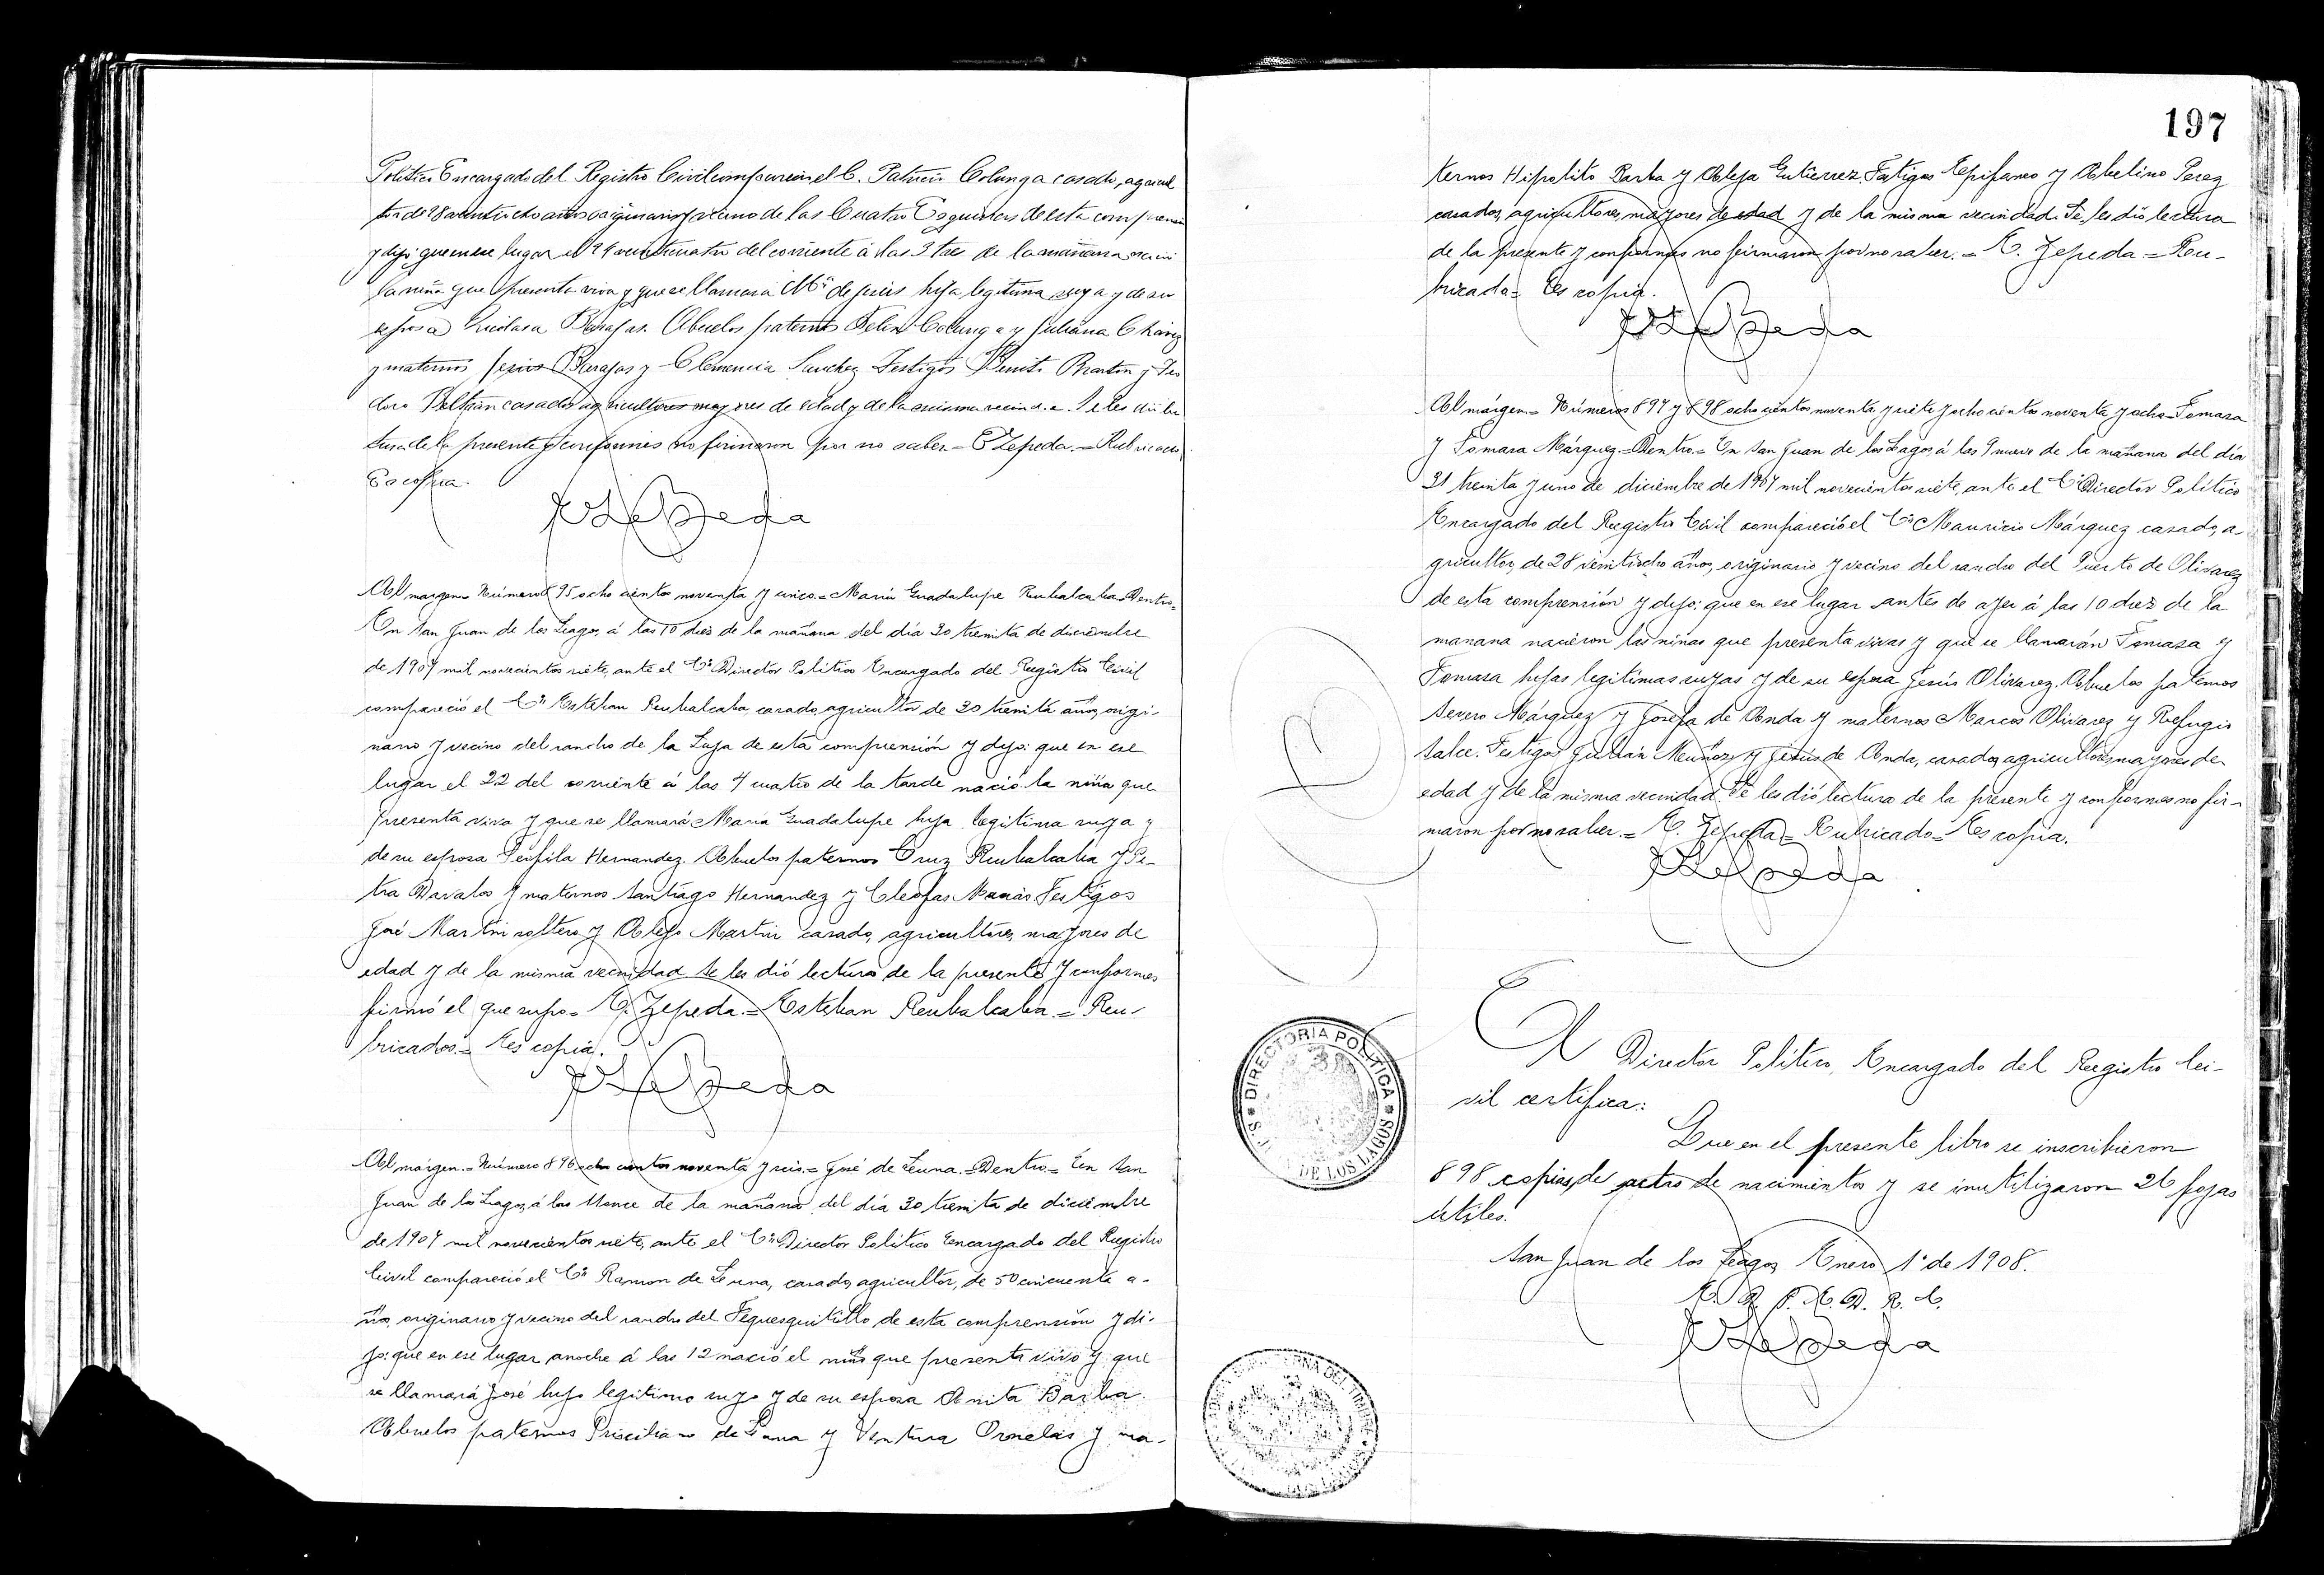 Politico Encargado del Registro Civil comparecio el C. Patricio Colunga casado, agricul
tor de 28 veintiocho años originario y vecino de las Cuatro Esquinas de esta comprension
y dijo: que en ese lugar el 24 veinticuatro del corriente á las 3 tres de la mañana nacio
la niña que presenta viva y que se llamará Mª de Jesus hija legitima suya y de su
esposa Nicolasa Barajas. Abuelos paternos Felix Colunga y Juliana Chavez
y maternos Jesus Barajas y Clemencia Sanchez Testigos Benito Martin y Teo
doro Beltran casados agricultores mayores de edad y de la misma vecind. Se les dió lec
tura de la presente y conformes no firmaron por no saber.= E Zepeda.= Rubricado.
Es copia.
EZepeda
Al margen= Número 895 ocho cientos noventa y cinco.= María Guadalupe Rubalcaba=Dentro=
En San Juan de los Lagos, á las 10 diez de la mañana del día 30 treinta de diciembre
de 1907 mil novecientos siete, ante el Cº Director Politico Encargado del Registro Civil
compareció el Cº Esteban Rubalcaba, casado, agricultor de 30 treinta años, origi-
nario y vecino del rancho de la Laja de esta comprensión y dijo: que en ese
lugar el 22 del corriente á las 4 cuatro de la tarde nació la niña que
presenta viva y que se llamará Maria Guadalupe hija legitima suya y
de su esposa Perfila Hernandez. Abuelos paternos Cruz Rubalcaba y Pe-
tra Davalos y maternos Santiago Hernandez y Cleofas Macias Testigos
José Martin soltero y Alejo Martin casado, agricultores, mayores de
edad y de la misma vecindad Se les dió lectura de la presente y conformes
firmó el que supo= E. Zepeda.= Esteban Rubalcaba.= Ru-
bricados.= Es copia.
EZepeda
Al márgen.= Número 896 ocho cientos noventa y seis.= José de Luna.=Dentro.= En San
Juan de los Lagos, á las 11 once de la mañana del día 30 treinta de diciembre
de 1907 mil novecientos siete, ante el Cº Director Politico Encargado del Registro
Civil compareció el Cº Ramon de Luna, casado, agricultor, de 50 cincuenta a-
ños, originario y vecino del rancho del Tequesquitillo de esta comprensión y di-
jo: que en ese lugar anoche á las 12 nació el niño que presenta vivo y que
se llamará José hijo legitimo suyo y de su esposa Anita Barba.
Abuelos paternos Prisciliano de Luna y Ventura Ornelas y ma-
197
ternos Hipolito Barba y Aleja Gutierrez. Testigos Epifaneo y Abelino Perez
casados, agricultores, mayores de edad y de la misma vecindad. Se les dió lectura
de la presente y conformes no firmaron por no saber.= E. Zepeda = Ru-
bricado= Es copia.
EZepeda
Al márgen= Números 897 y 898 ocho cientos noventa y siete y ocho cientos noventa y ocho=Tomasa
y Tomasa Márquez.=Dentro.= En San Juan de los Lagos á las 9 nueve de la mañana del día
31 treinta y uno de diciembre de 1907 mil novecientos siete, ante el Cº Director Politico
Encargado del Registro Civil compareció el Cº Mauricio Márquez casado, a-
gricultor, de 28 veintiocho años, originario y vecino del rancho del Puerto de Olivarez
de esta comprensión y dijo: que en ese lugar antes de ayer á las 10 diez de la
mañana nacieron las niñas que presenta vivas y que se llamarán Tomasa y
Tomasa hijas legitimas suyas y de su esposa Jesús Olivarez. Abuelos paternos
Severo Márquez y Josefa de Anda y maternos Marcos Olivarez y Refugio
Salce. Testigos Julián Muñoz y Jesús de Anda, casados, agricultores, mayores de
edad y de la misma vecindad. Se les dió lectura de la presente y conformes no fir-
maron por no saber.= E. Zepeda= Rubricado= Es copia.
EZepeda
El Director Politico, Encargado del Registro Ci-
vil certifica:
Que en el presente libro se inscribieron
898 copias de actas de nacimientos y se inutilizaron 26 fojas
útiles.
San Juan de los Lagos, Enero 1º de 1908.
E. D. P. E. D. R. C.
EZepeda
DIRECTORIA POLITICA * S. J. DE LOS LAGOS *